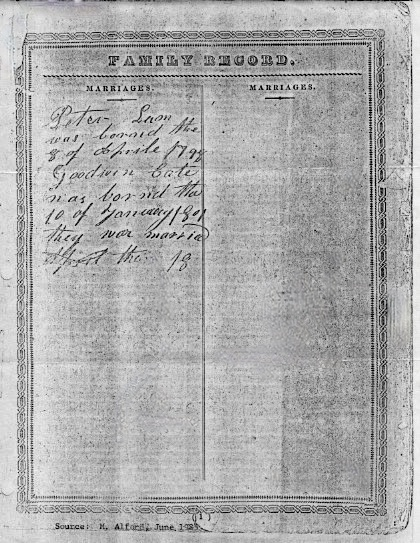 FAMILY RECORD.
MARRIAGES.
MARRIAGES.
Peter Lam
was bornd the
8 of Aprile 1799
Goodwin Cate
was bornd the
10 of January 1801
they war married
the 18
(1)
Source: M. Alford, June